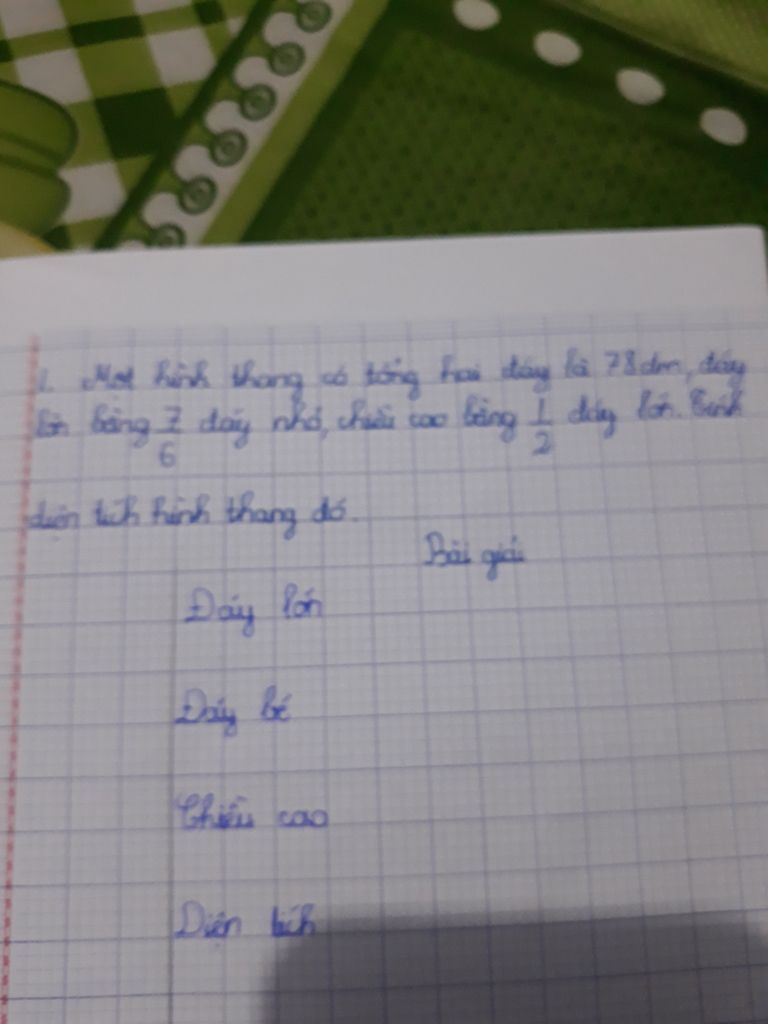 1. Một hình thang có tổng hai đáy là 78dm, đáy
lớn bằng 7/6 đáy nhỏ, chiều cao bằng 1/2 đáy lớn. Tính
diện tích hình thang đó.
Bài giải
Đáy lớn
Đáy bé
Chiều cao
Diện tích